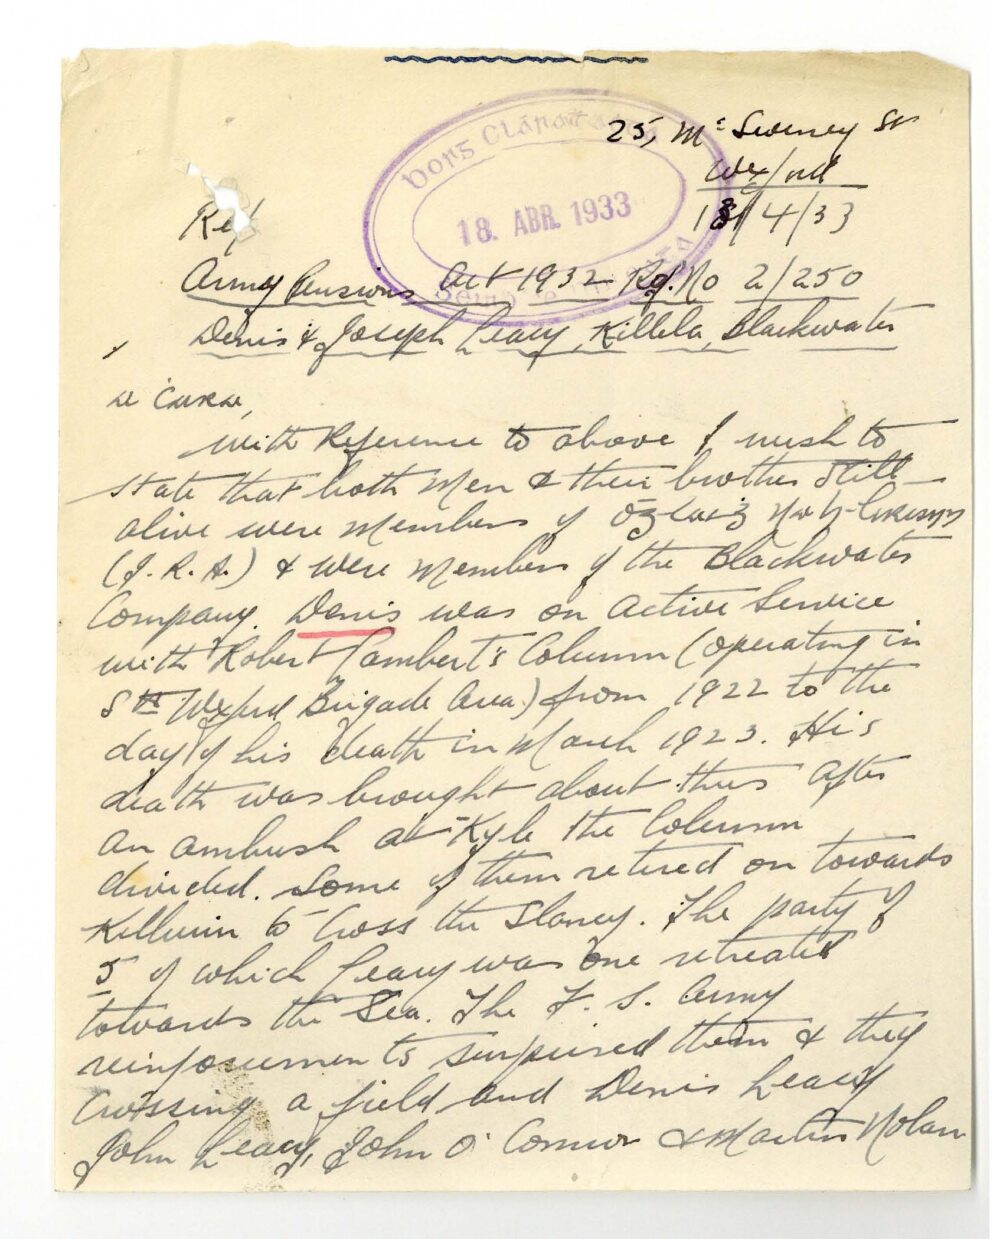 25, Mc Sweeney St
Wexford
18/4/33
18. ABR. 1933
Ref
Army Pensions Act 1932 Rg. No 2/250
Denis & Joseph Leacy, Killela, Blackwater
A Chara,
With Reference to above I wish to
state that both Men & their brother still
alive were Members of Óglaigh na h-Eireann
(I.R.A.) & were Members of the Blackwater
Company. Denis was on Active Service
with Robert Lambert's Column (operating in
Sth Wexford Brigade Area) from 1922 to the
day of his death in March 1923. His
death was brought about thus After
an ambush at Kyle the Column
divided. Some of them retired on towards
Killurin to Cross the Slaney. The party of
5 of which Leacy was one retreated
towards the Sea. The F. S. Army
reinforcements surprised them & they
crossing a field and Denis Leacy
John Leacy, John O'Connor & Martin Nolan